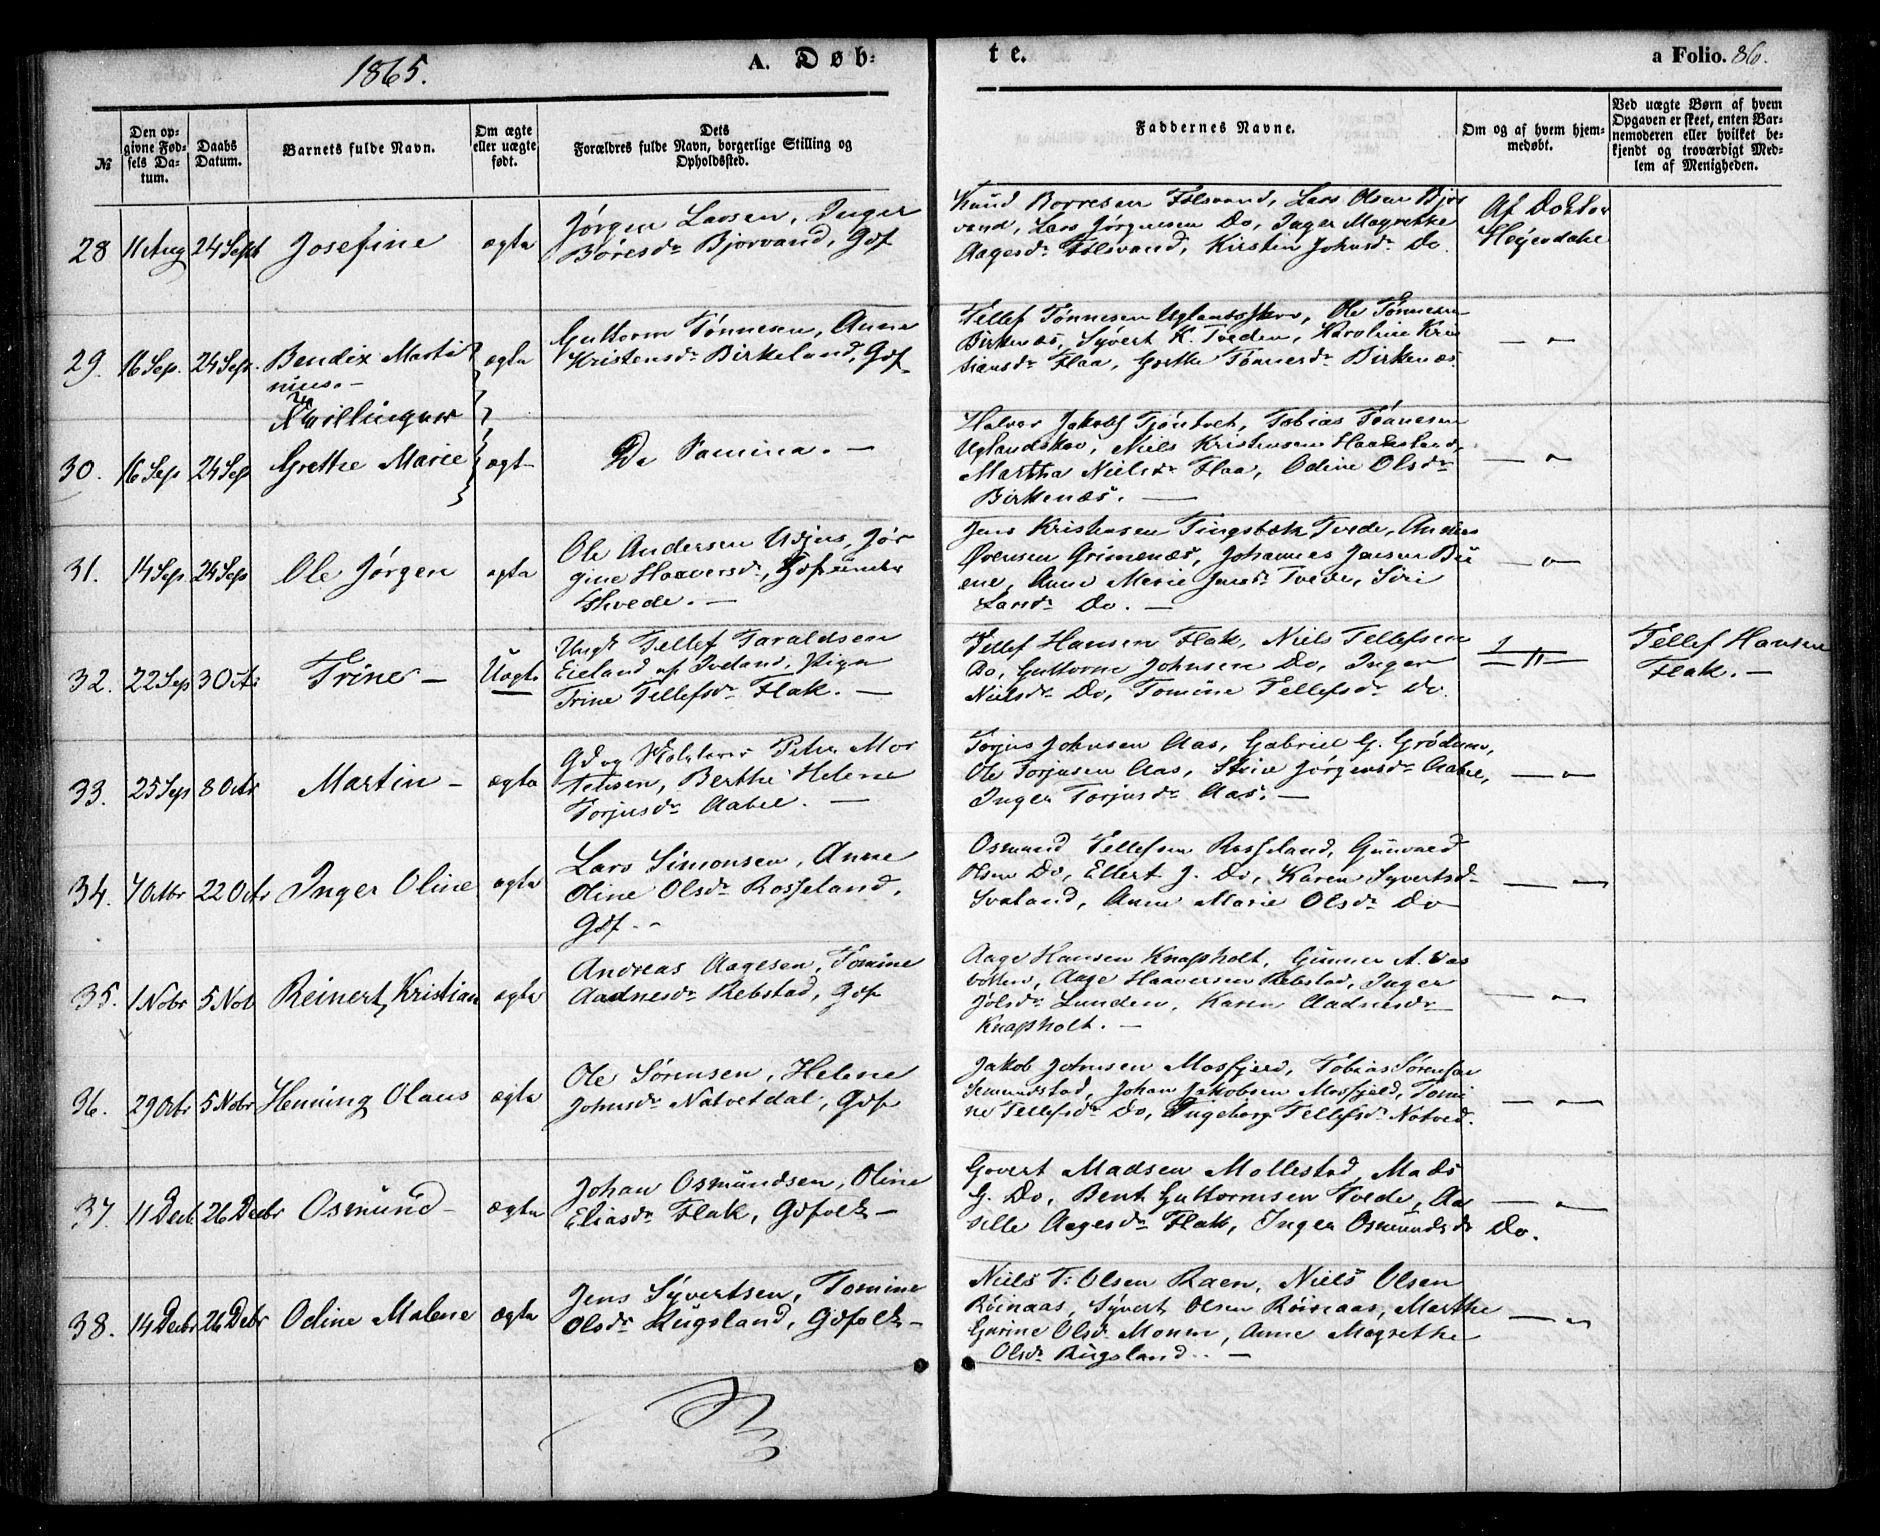 1865.
A. Døb-
te.
a Folio. 86.
№
Den op-
givne Fød-
sels Da-
tum.
Daabs
Datum.
Barnets fulde Navn.
Om ægte
eller uægte
født.
Dets
Forældres fulde Navn, borgerlige Stilling og
Opholdssted.
Faddernes Navne.
Om og af hvem hjem-
medøbt.
Ved uægte Børn af hvem
Opgaven er skeet, enten Bar-
nemoderen eller hvilket be-
kjendt og troværdigt Med-
lem af Menigheden.
28 11 Aug 24 Sept Josefine ægte
Jørgen Larsen, Inger
Böresdr Bjorvand, Gdf
Knud Borresen Følsvand, Lars Olsen Bjor
vand, Lars Jørgensen Do, Inger Magrethe
Aagesdr Følsvand, Kirstin Johnsdr Do.
Af Doktor
Heyerdahl
29. 16 Sep. 24 Sep. Bendix Marti
nius. —
Tvillinger
ægte
Guttorm Tønnesen, Anne
Kristensdr Birkeland, Gdf
Tellef Tønnesen Uglandsskov, Ole Tønnesen
Birkenæs, Syvert K. Tveden, Karoline Kri
stiansdr Flaa, Grethe Tønnesdr Birkenæs.
— " —
30. 16 Sep 24 Sep Grethe Marie ægt-
De Samma. —
Halvor Jakobs Tjøntvet, Tobias Tønnesen
Uglandskov, Niels Kristensen Haabesland,
Martha Nielsdr Flaa, Odine Olsdr
Birkenæs. —
— " —
31. 14 Sep 24 Sep Ole Jørgen ægte
Ole Andersen Usjus, Jør
gine Haaversdr, Gdf under
Tvede. —
Jens Kristensen Tingsbæk Tvede, Anders
Ovensen Grimenæs, Johannes Jensen Bü
ene, Anne Marie Jensdr Tvede, Siri
Larsdr Do. —
— " —
32. 22 Sep 30 Otr Trine — Uægte
Ungk Tellef Taraldsen
Eieland af Iveland, Pigen
Trine Tellefsdr Flak. —
Tellef Hansen Flak, Niels Tellefsen
Do, Guttorm Johnsen Do, Inger
Nielsdr Do, Tomine Tellefsdr Do.
1
— " —
Tellef Hansen
Flak. —
33. 25 Sep 8 Otr Martin — ægte
Gd og Peter Mor
tensen, Berthe Helene
Torjusdr Aabel. —
Torjus Johnsen Aas, Gabriel G. Grødum,
Ole Torjusen Aas, Stine Jørgensdr Aabel,
Inger Torjusdr Aas. —
— " —
34. 7 Otbr 22 Otr Inger Oline ægte
Lars Simonsen, Anne
Oline Olsdr Rosseland,
Gdf. —
Osmund Tellefsen Rosseland, Gunvald
Olsen Do, Ellert J. Do, Karen Syvertsd
Svaland, Anne Marie Olsdr Do
— " —
35. 1 Nobr 5 Nob Reinert Kristian ægte
Andreas Aagesen, Tomine
Aadnesdr Rebstad, Gdf
Aage Hansen Knapholt, Gunner A. Vas
botten, Aage Haaversen Rebstad, Inger
Jölsdr Lunden, Karen Aadnesdr
Knapholt. —
— " —
36. 29 Otr 5 Nobr Henning Olaus ægte
Ole Sørensen, Helene
Johnsdr Natvetdal, Gdf
Jakob Johnsen Mosfjeld, Tobias Sørensen
Semundstad, Johan Jakobsen Mosfjeld, Tomi
ne Tellefsdr Do, Ingeborg Tellefsdr Natved.
— " —
37. 11 Decb 26 Decbr Osmund — ægte
Johan Osmundsen, Oline
Eliasdr Flak, Gdfolk —
Govert Madsen Mollestad, Mads
G. Do, Bent Guttormsen Tvede, Aa
sille Aagesdr Flak, Inger Osmundsdr Do.
— " —
38. 14 Decbr 26 Decbr Odine Malene ægte
Jens Syvertsen, Tomine
Olsdr Rugsland, Gdfolk —
Niels T. Olsen Raen, Niels Olsen
Röinaas, Syvert Olsen Röinaas, Marthe
Gurine Olsd. Monen, Anne Magrethe
Olsdr Rugsland. —
— " —